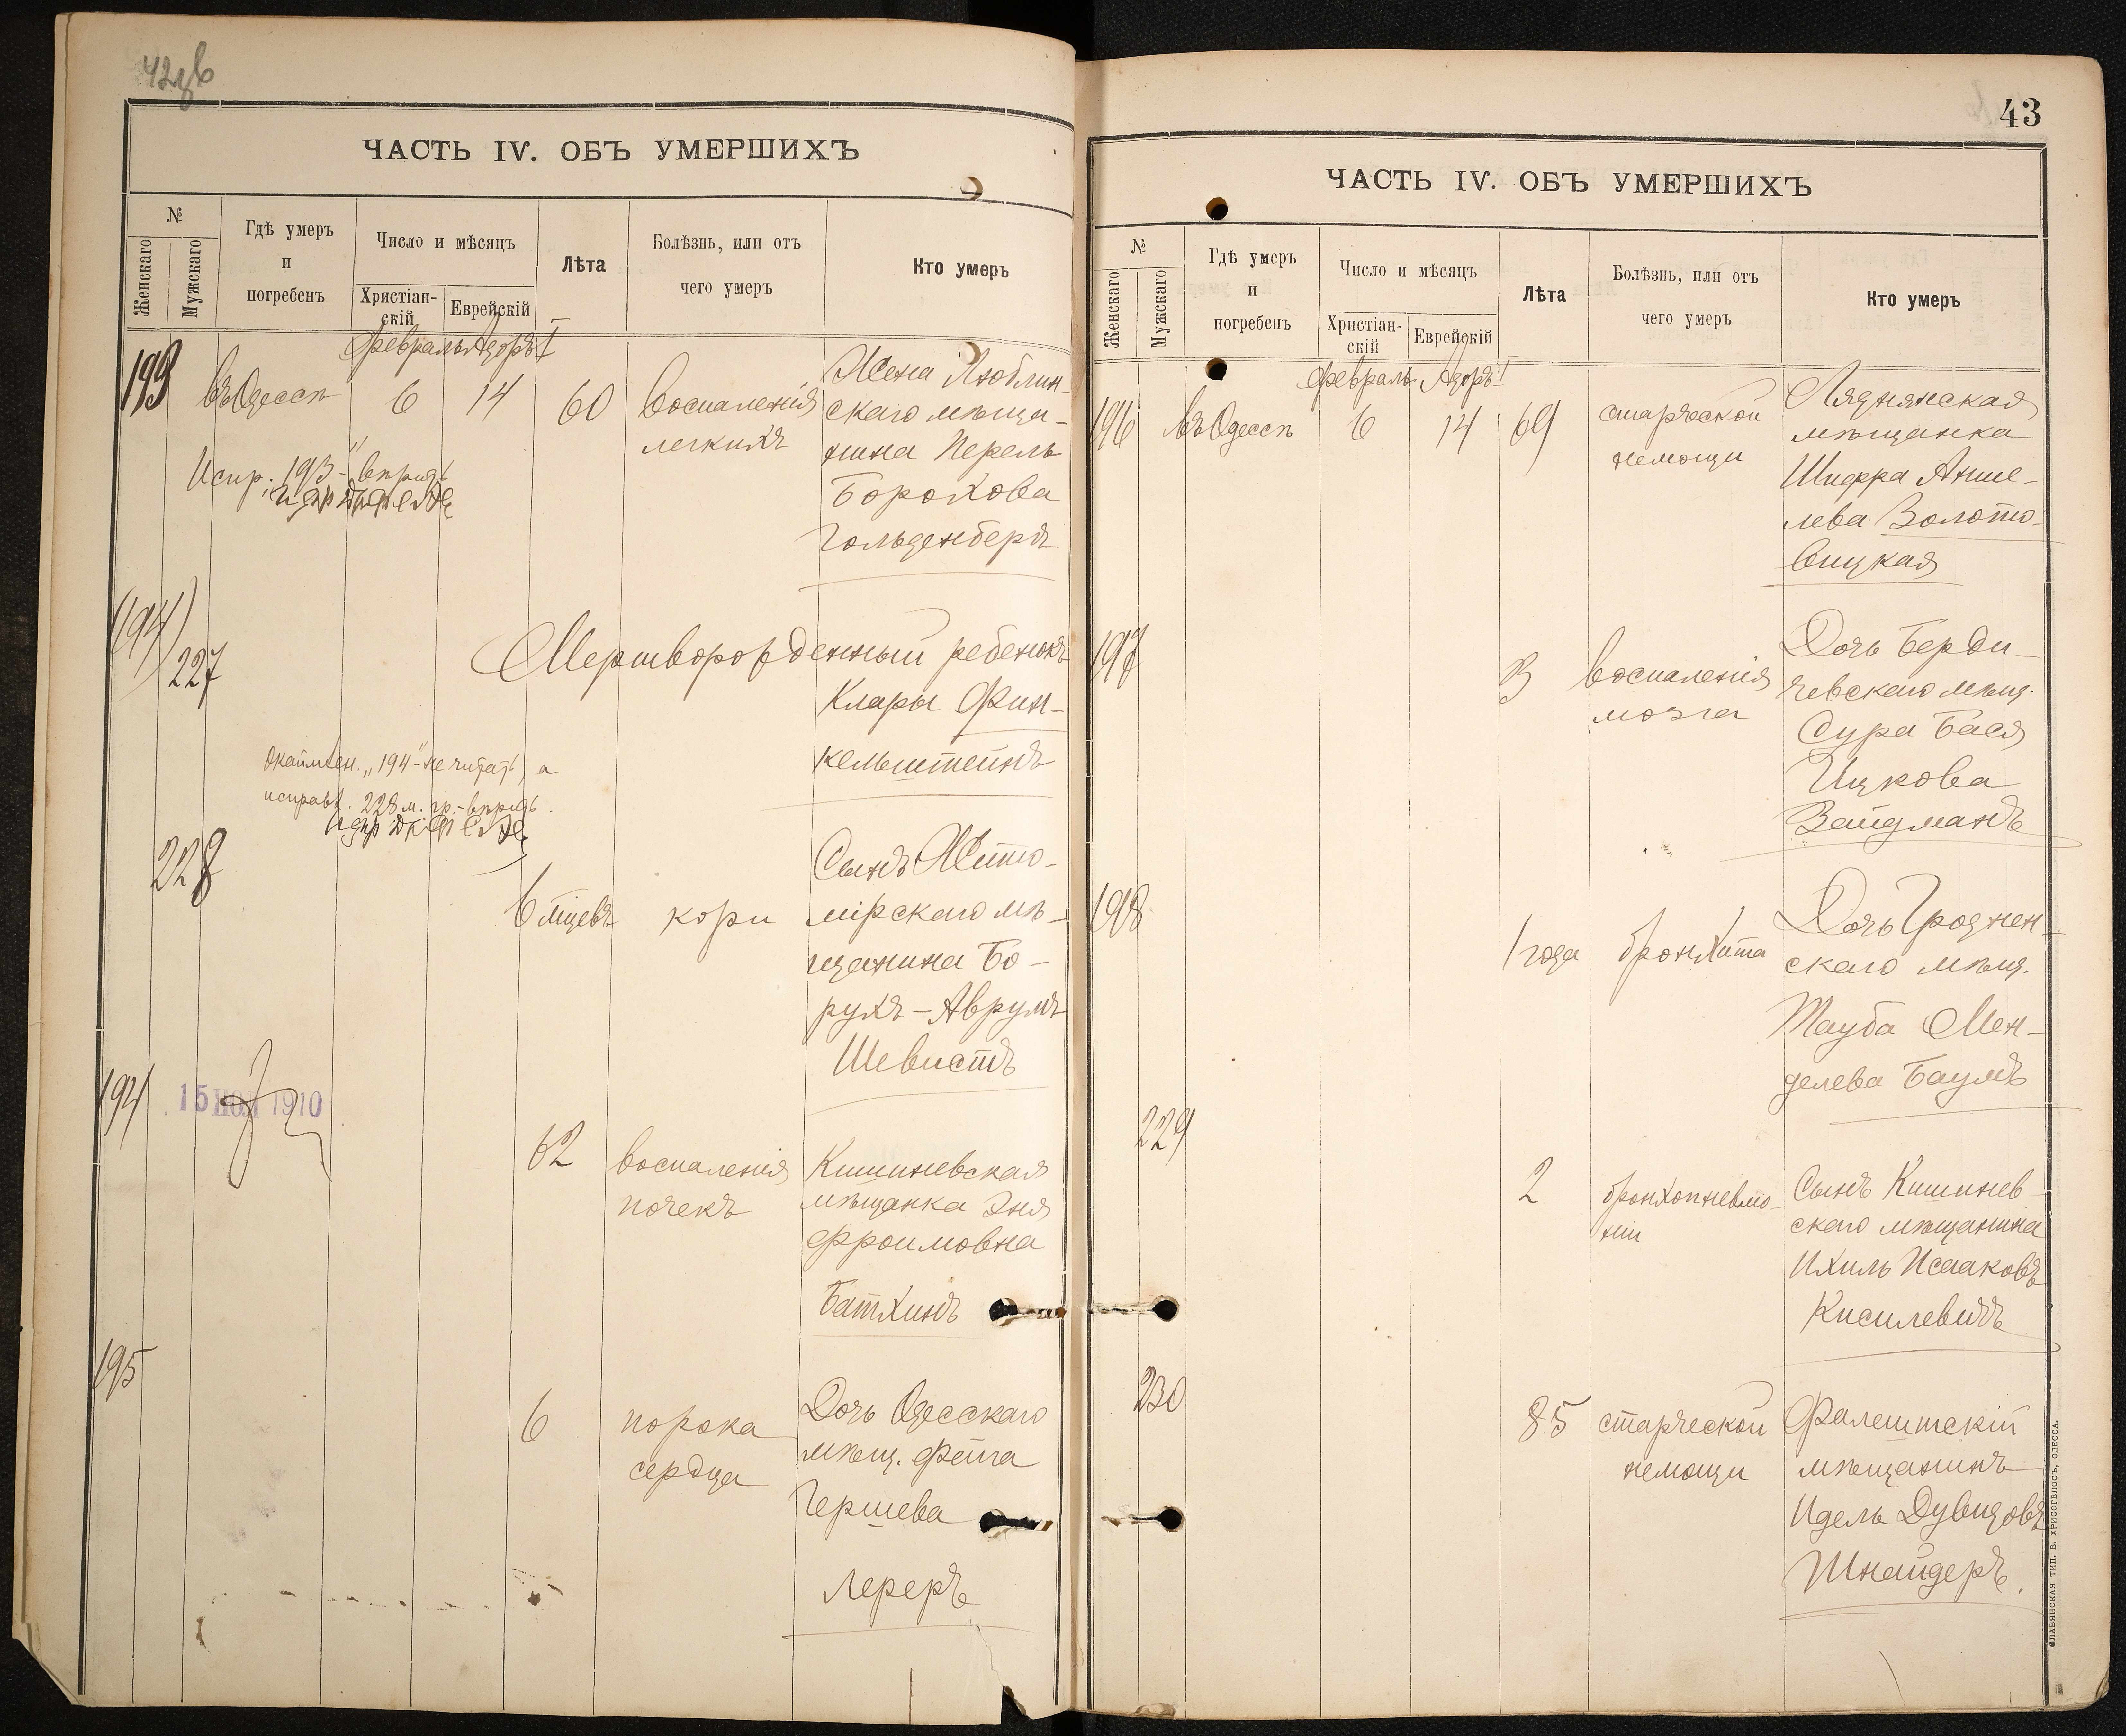 ЧАСТЬ IV. ОБЪ УМЕРШИХЪ
№
Женскаго
Мужскаго
Гдѣ умеръ
и
погребенъ
Число и мѣсяцъ
Христіан-
скій
Еврейскій
Лѣта
Болѣзнь, или отъ
чего умеръ
Кто умеръ
Февраль Адаръ I
193
въ Одессѣ
6
14
60
воспаленія
легкихъ
Жена Люблин-
скаго мѣща-
нина Перель
Борохова
Гольденбергъ
Испр. „193“ - вѣрить
(194)
227
Мертворожденный ребенокъ
Клары Фин-
кельштейнъ
Окаймлен. „194“ - не читать, а
исправл. 228 м. гр. - вѣрить.
228
6 мѣцевъ
кори
Сынъ Жито-
мірскаго мѣ-
щанина Бо-
рухъ - Аврумъ
Шевистъ
194
15 НОЯ 1910
62
воспаленія
почекъ
Кишиневская
мѣщанка Эня
Фроимовна
Батхинъ
195
6
порока
сердца
Дочь Одесскаго
мѣщ. Фейга
Гершева
Лереръ
43
ЧАСТЬ IV. ОБЪ УМЕРШИХЪ
№
Женскаго
Мужскаго
Гдѣ умеръ
и
погребенъ
Число и мѣсяцъ
Христіан-
скій
Еврейскій
Лѣта
Болѣзнь, или отъ
чего умеръ
Кто умеръ
Февраль Адаръ I
196
въ Одессѣ
6
14
69
старческой
немощи
Ляднянская
мѣщанка
Шифра Анше-
лева Золото-
вицкая
197
3
воспаленія
мозга
Дочь Берди-
чевскаго мѣщ.
Сура Бася
Ицкова
Вайдманъ
198
1 года
бронхита
Дочь Гроднен-
скаго мѣщ.
Тауба Мен-
делева Баумъ
229
2
бронхопневмо-
ніи
Сынъ Кишинев-
скаго мѣщанина
Ихиль Исааковъ
Кисилевичъ
230
85
старческой
немощи
Фалештскій
мѣщанинъ
Идель Дувидовъ
Шнайдеръ.
СЛАВЯНСКАЯ ТИП. Е. ХРИСОГЕЛОСЪ, ОДЕССА.